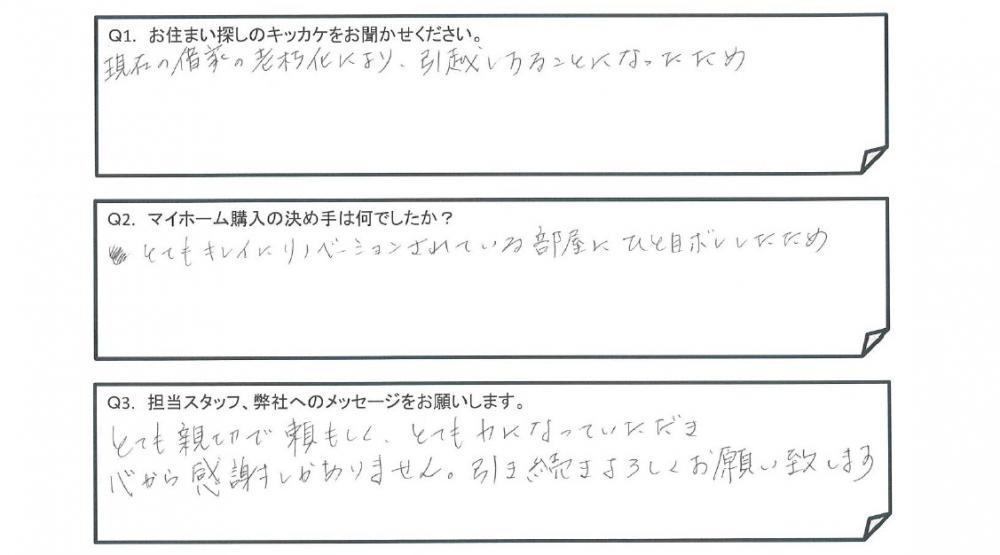 Q1. お住まい探しのキッカケをお聞かせください。
現在の借家の老朽化により、引越しすることになったため
Q2. マイホーム購入の決め手は何でしたか？
とてもキレイにリノベーションされている部屋にひと目ボレしたため
Q3. 担当スタッフ、弊社へのメッセージをお願いします。
とても親切で頼もしく、とても力になっていただき
心から感謝しかありません。引き続きよろしくお願い致します